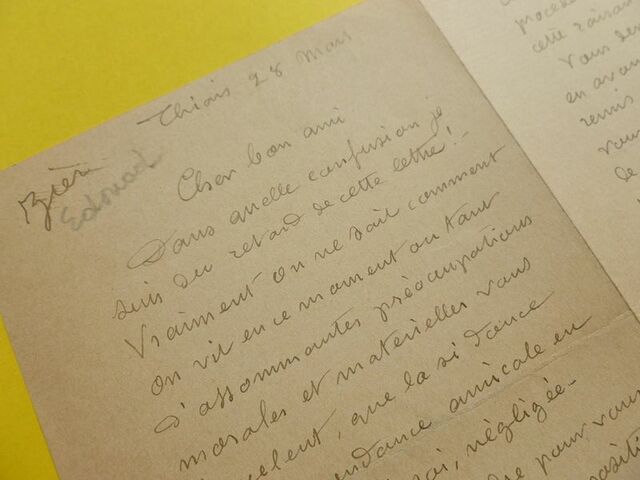 Thiais 28 Mars
Edouard
Cher bon ami
Dans quelle confusion je
suis du retard de cette lettre!
Vraiment on ne sait comment
on vit en ce moment ou tant
d'assommantes préocupations
morales et matérielles vous
que la si douce
amicale en
négligée
pour vous
cette raison
Vous
en
remis
de